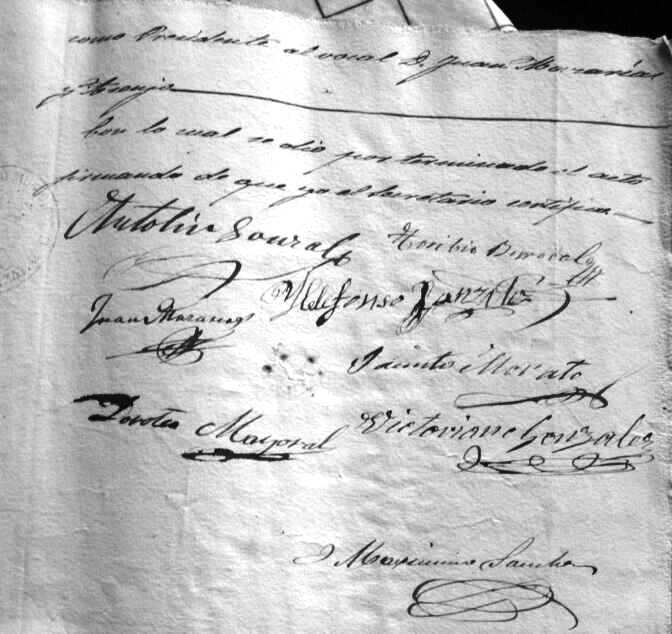 como Presidente al vocal D. Juan Maranas
y Araujo
Con lo cual se dio por terminado el acto
firmando de que yo el Secretario certifico.
Antolin Gonzal
Toribio
Juan Maranas
Yldefonso Gonzalez
Jacinto Morato
Dorotea Mayoral
Victoriano Gonzalez
Maximino Sanchez